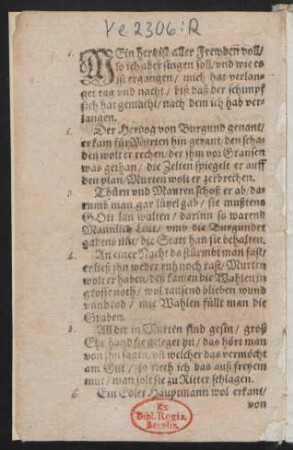 Ye 2306:R
1. MEin hertz ist aller Frewden voll/
so ich aber singen soll/ vnd wie es
ist ergangen/ mich hat verlan-
get tag vnd nacht/ biß daß der schimpf
sich hat gemacht/ nach dem ich hab ver-
langen.
2. Der Hertzog von Burgund genant/
er kam für Murten hin gerant/ den scha-
den wolt er rechen/ der jhm vor Gransen
was gethan/ die Zelten spiegelt er auff
den plan/ Murten wolt er zerbrechen.
3. Thürn vnd Mauren schoß er ab/ da-
rumb man gar lützel gab/ sie mußtens
GOtt lan walten/ darinn so warend
Mannlich Leut/ vmb die Burgunder
gabens nüt/ die Statt han sie behalten.
4. An einer Nacht da stürmbt man fast/
er ließ jhn weder ruh noch rast/ Murten
wolt er haben/ deß kamen die Wahlen in
grosse noth/ wol tausend blieben wund
vnd tod/ mit Wahlen füllt man die
Graben.
5. All der in Murten sind gesin/ groß
Ehr hand sie geleget yn/ das hört man
von jhn sagen/ welcher das vermöcht
am Gut/ so rieth ich das auß freyem
mut/ man solt sie zu Ritter schlagen.
6. Ein Edler Hauptmann wol erkant/
von
Ex
Bibl. Regia
Berolin.